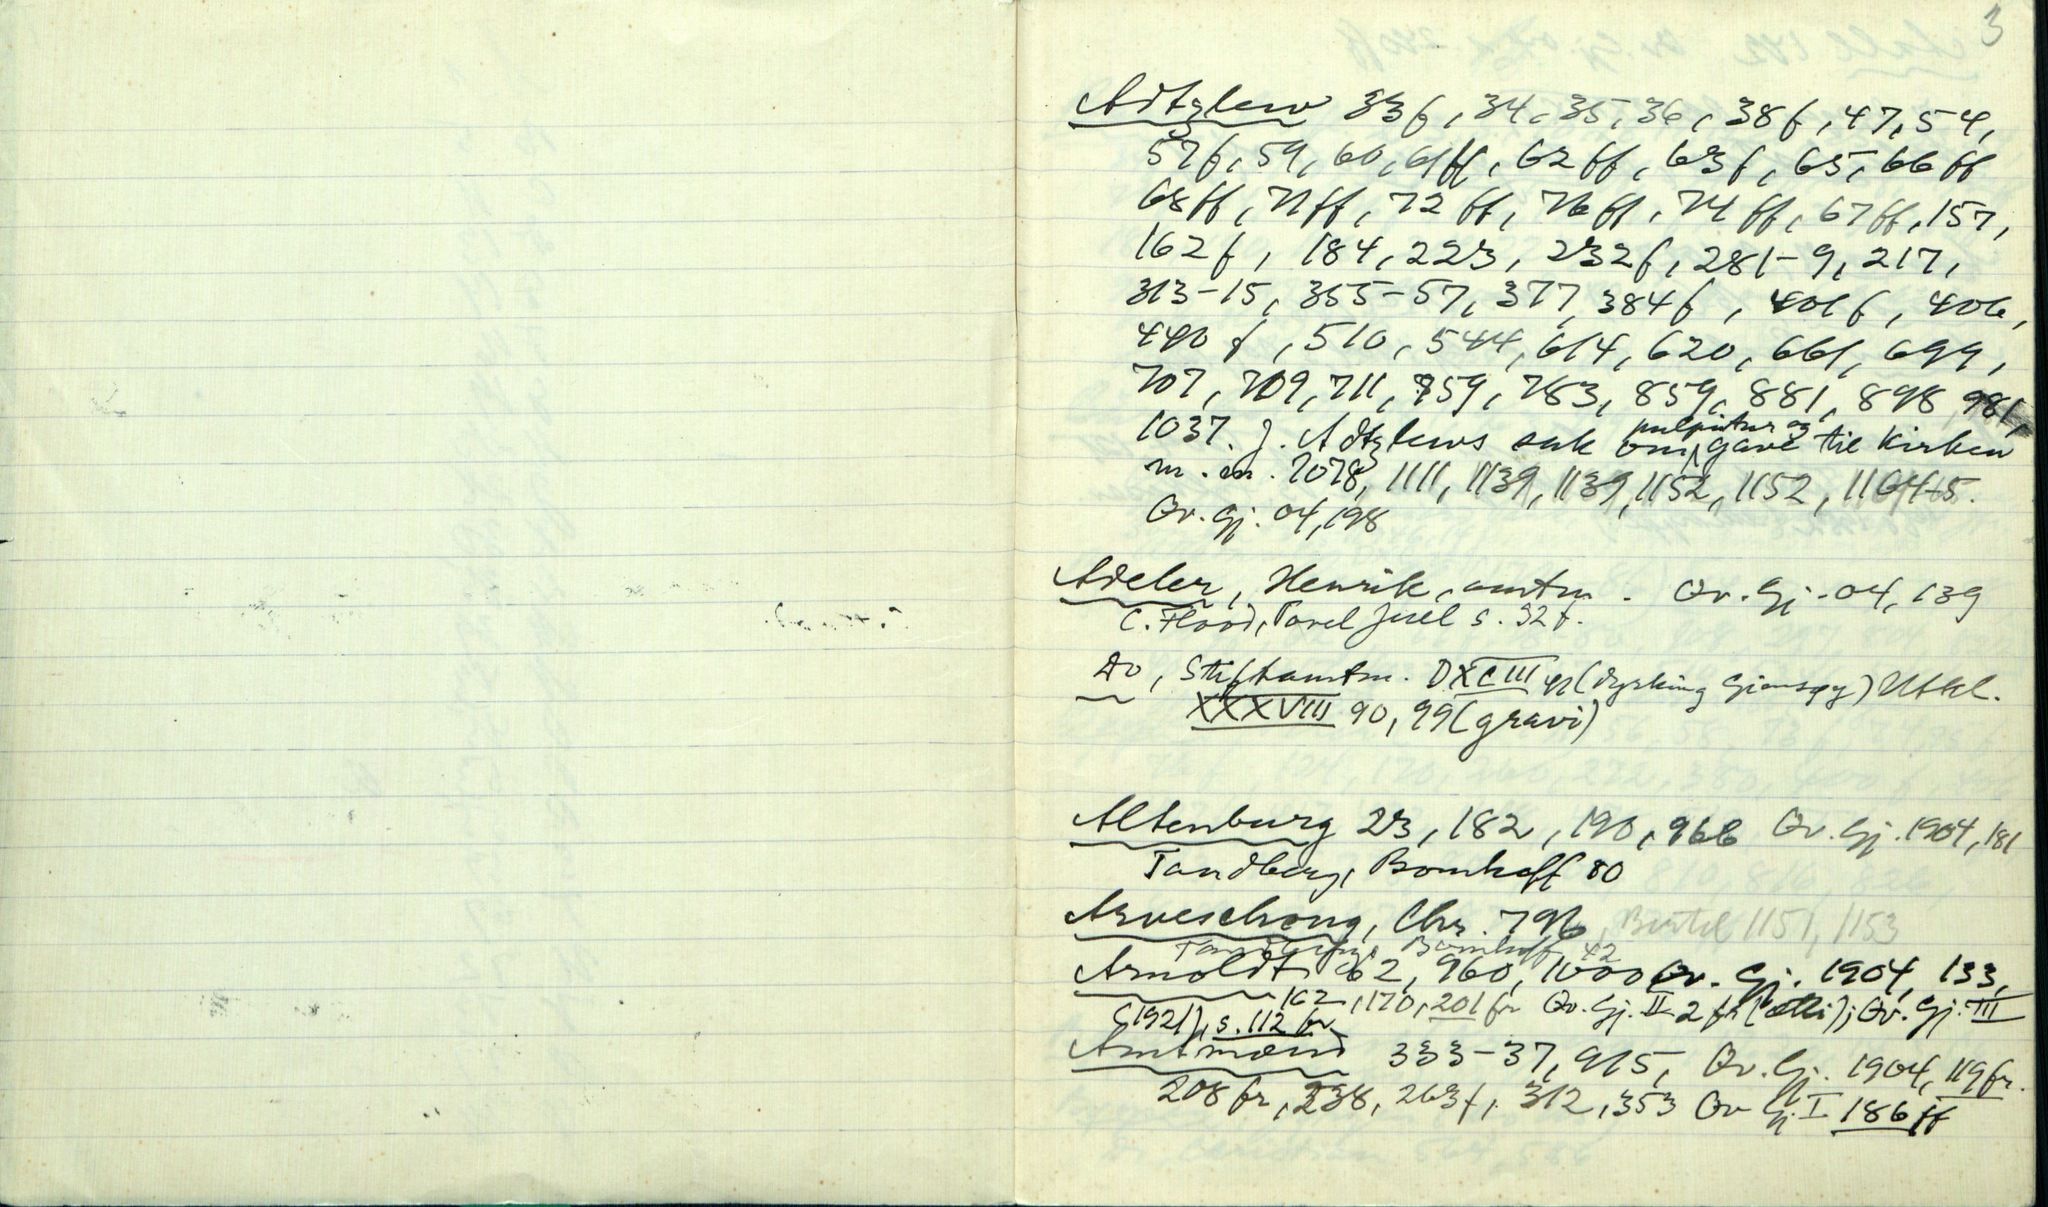 3
Adtzlew 33f, 34, 35, 36, 38f, 47, 54,
57f, 59, 60, 61ff, 62ff, 63f, 65, 66ff
68ff, 71ff, 72ff, 76ff, 74ff, 67ff, 157,
162f, 184, 223, 232f, 281-9, 217,
313-15, 355-57, 377, 384f, 401f, 406,
440f, 510, 544, 614, 620, 661, 699,
707, 709, 711, 759, 783, 859, 881, 898 981,
pulpitur og
1037. J. Adtzlews sak om gave til Kirken
m. m. 1078, 1111, 1139, 1139, 1152, 1152, 1164-65.
Øv. Gj. 04, 198
Adeler, Henrik, amtm. Øv. Gj. 04, 139
C. Flood, Povel Juel s. 32f.
Do, Stiftamtm. DXCIII Utkl.
XXXVIII 90, 99 (gravi)
Altenburg 23, 182, 190, 966 Øv. Gj. 1904, 181
Tandberg, Bomhoff 80
Arveschoug, Chr. 796, Bertel 1151, 1153
Tandberg, Bomhoff 42
Arnoldt 62, 960, 1000 Øv. Gj. 1904, 133,
162, 170, 201fr Øv. Gj. II 2 fr ; Øv. Gj. III
(1921), s. 112 fr
Amtmænd 333-37, 915, Øv. Gj. 1904, 119fr.
208fr, 238, 263f, 312, 353 Øv Gj. I 186ff